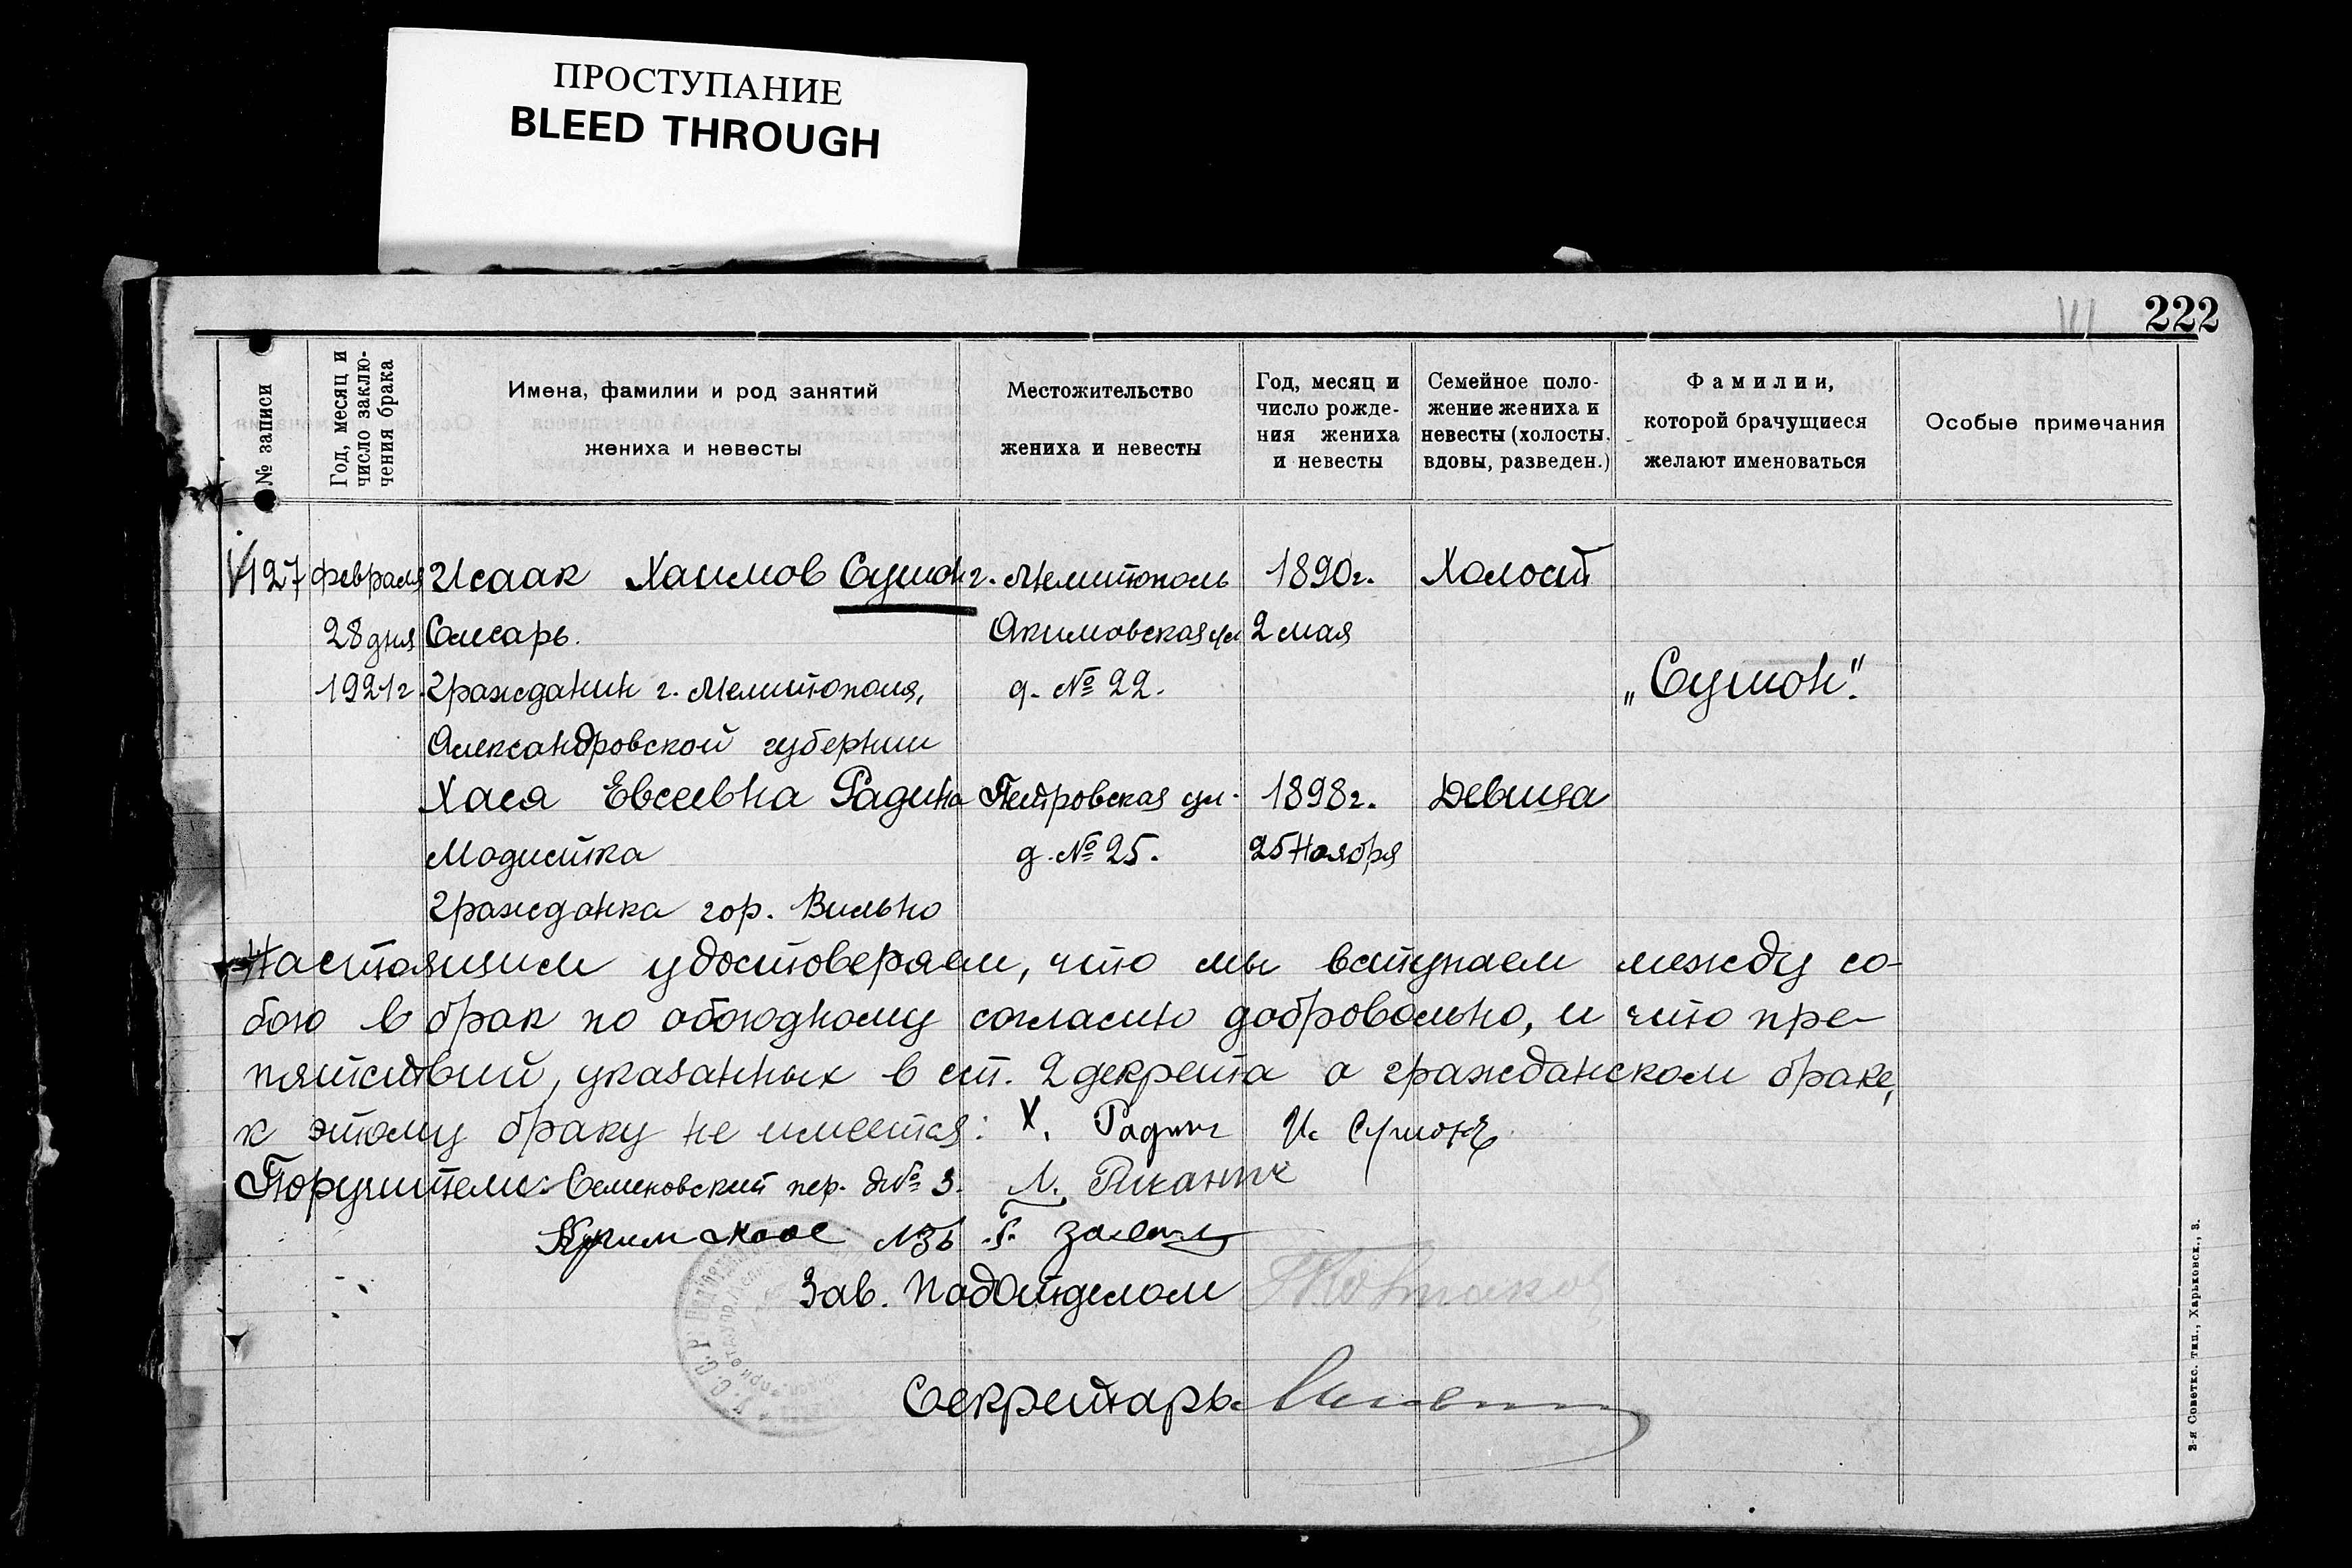 ПРОСТУПАНИЕ
BLEED THROUGH
222
№ записи
Год, месяц и число заклю-чения брака
Имена, фамилии и род занятий
жениха и невесты
Местожительство
жениха и невесты
Год, месяц и
число рожде-
ния жениха
и невесты
Семейное поло-
жение жениха и
невесты (холосты,
вдовы, разведен.)
Фамилии,
которой брачущиеся
желают именоваться
Особые примечания
127 февраля Исаак Хаимов Сушон г. Мелитополь 1890г. Холост
28 дня Слесарь. Акимовская ул 2 мая
1921г. Гражданин г. Мелитополя, д. № 22. „Сушон".
Александровской губернии
Хася Евсеевна Радина Петровская ул. 1898г. Девица
Модистка д. № 25. 25 Ноября
Гражданка гор. Вильно
Настоящим удостоверяем, что мы вступаем между со-
бою в брак по обоюдному согласию добровольно, и что пре-
пятствий, указанных в ст. 2 декрета о гражданском браке,
к этому браку не имеется: Х. Радина И. Сушонъ
Поручители: Семеновский пер. д № 3. Л.
№
Зав. Подотделом
Секретарь
2-я Советс. тип., Харьковск., 3.